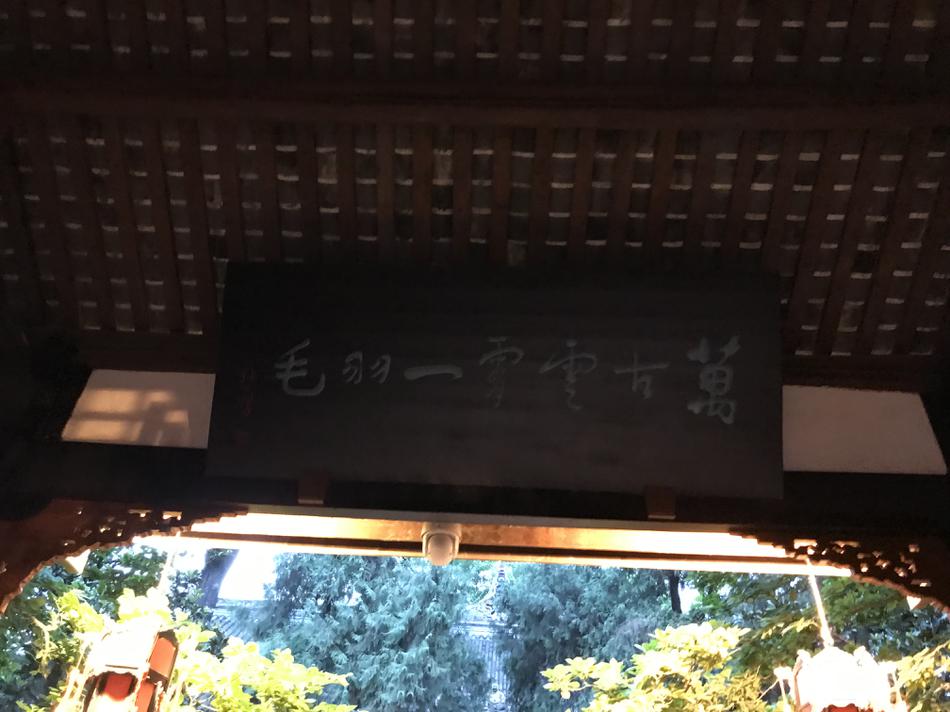 萬古雲霄一羽毛